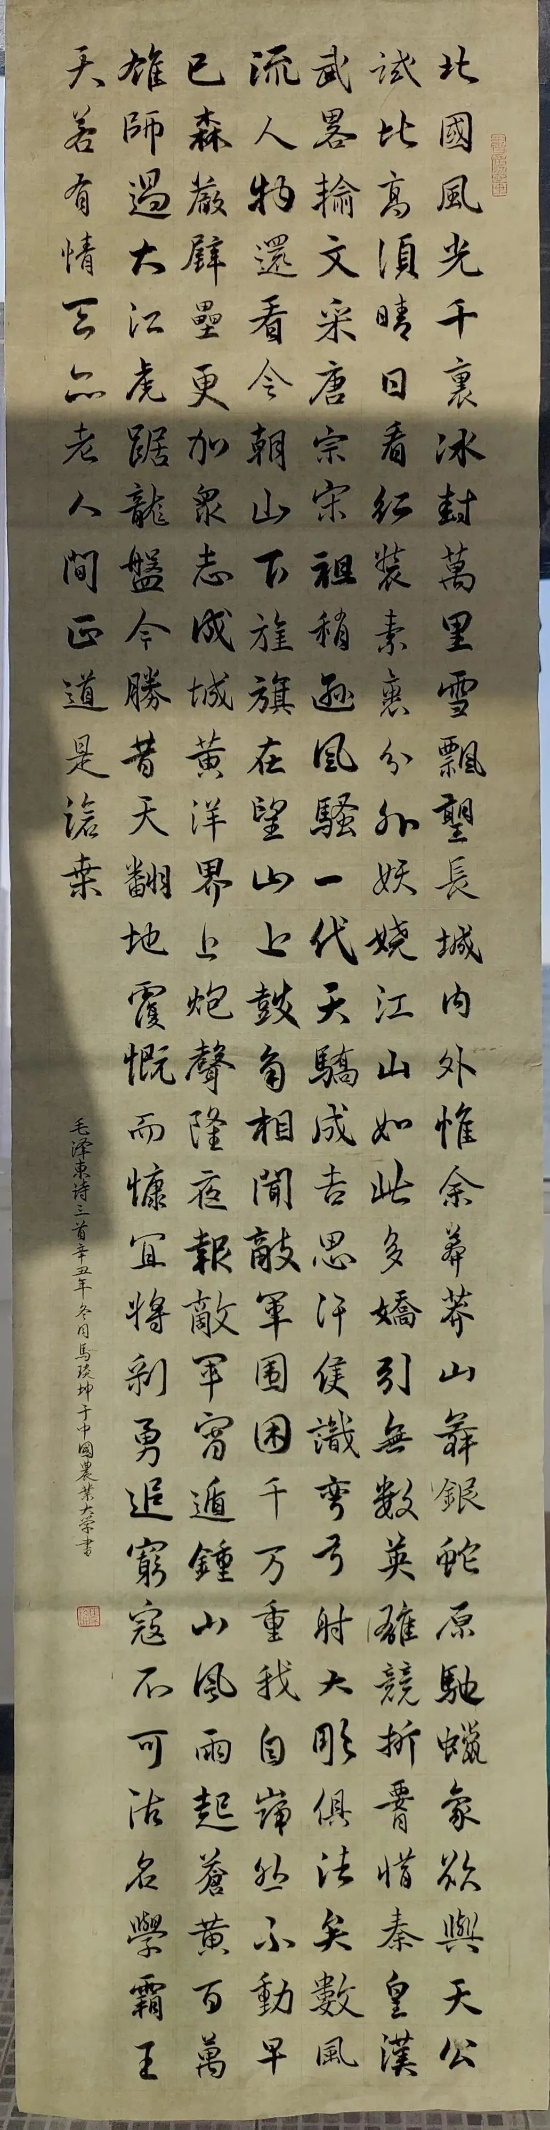 北國風光千裏冰封萬里雪飄望長城内外惟余莽莽山舞銀蛇原馳蠟象欲與天公
試比高須晴日看紅裝素裹分外妖嬈江山如此多嬌引無數英雄競折腰惜秦皇漢
武畧輸文采唐宗宋祖稍遜風騷一代天驕成吉思汗僅識彎弓射大彫俱往矣數風
流人物還看今朝山下旌旗在望山上鼓角相聞敵軍围困千万重我自巋然不動早
已森嚴壁壘更加眾志成城黃洋界上炮聲隆夜報敵軍宵遁鍾山風雨起蒼黃百萬
雄師過大江虎踞龍盤今勝昔天翻地覆慨而慷宜將剩勇追窮寇不可沽名學霸王
天若有情天亦老人間正道是滄桒
毛泽東诗三首辛丑年冬月馬琰坤于中國農業大学書